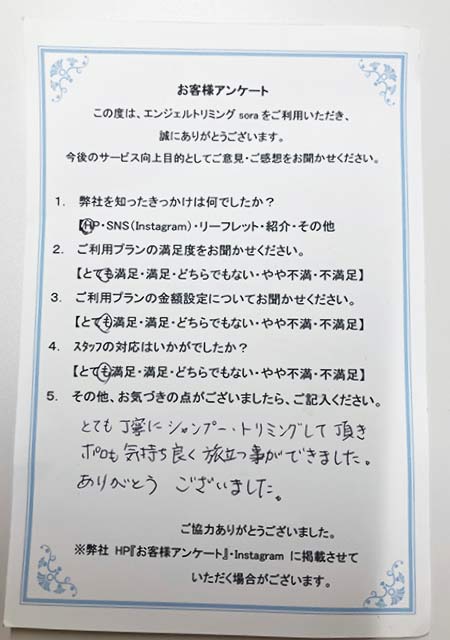 お客様アンケート
この度は、エンジェルトリミング sora をご利用いただき、
誠にありがとうございます。
今後のサービス向上目的としてご意見・ご感想をお聞かせください。
1. 弊社を知ったきっかけは何でしたか？
【HP・SNS（Instagram）・リーフレット・紹介・その他
2. ご利用プランの満足度をお聞かせください。
【とても満足・満足・どちらでもない・やや不満・不満足】
3. ご利用プランの金額設定についてお聞かせください。
【とても満足・満足・どちらでもない・やや不満・不満足】
4. スタッフの対応はいかがでしたか？
【とても満足・満足・どちらでもない・やや不満・不満足】
5. その他、お気づきの点がございましたら、ご記入ください。
とても丁寧にシャンプー・トリミングして頂き
ポロも気持ち良く旅立つ事ができました。
ありがとう ございました。
ご協力ありがとうございました。
※弊社 HP『お客様アンケート』・Instagram に掲載させて
いただく場合がございます。